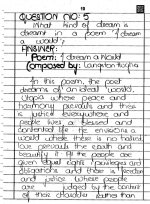 18
QUESTION NO: 5
What kind of dream is
dreamt in a poem "I dream
a world"?
ANSWER:
Poem: I dream a World
Composed by: Langston Hughes
In this poem, the poet
dreams of an ideal world,
where peace and
harmony prevails and there
is justice everywhere and
people live a blessed and
contented life. He envisions a
world where there is no hatred,
love pervails the earth and
beautify it. All the people are
given equal rights, privileges and
obligations and there is freedom
and justice where people
are judged by the content
of those character rather than